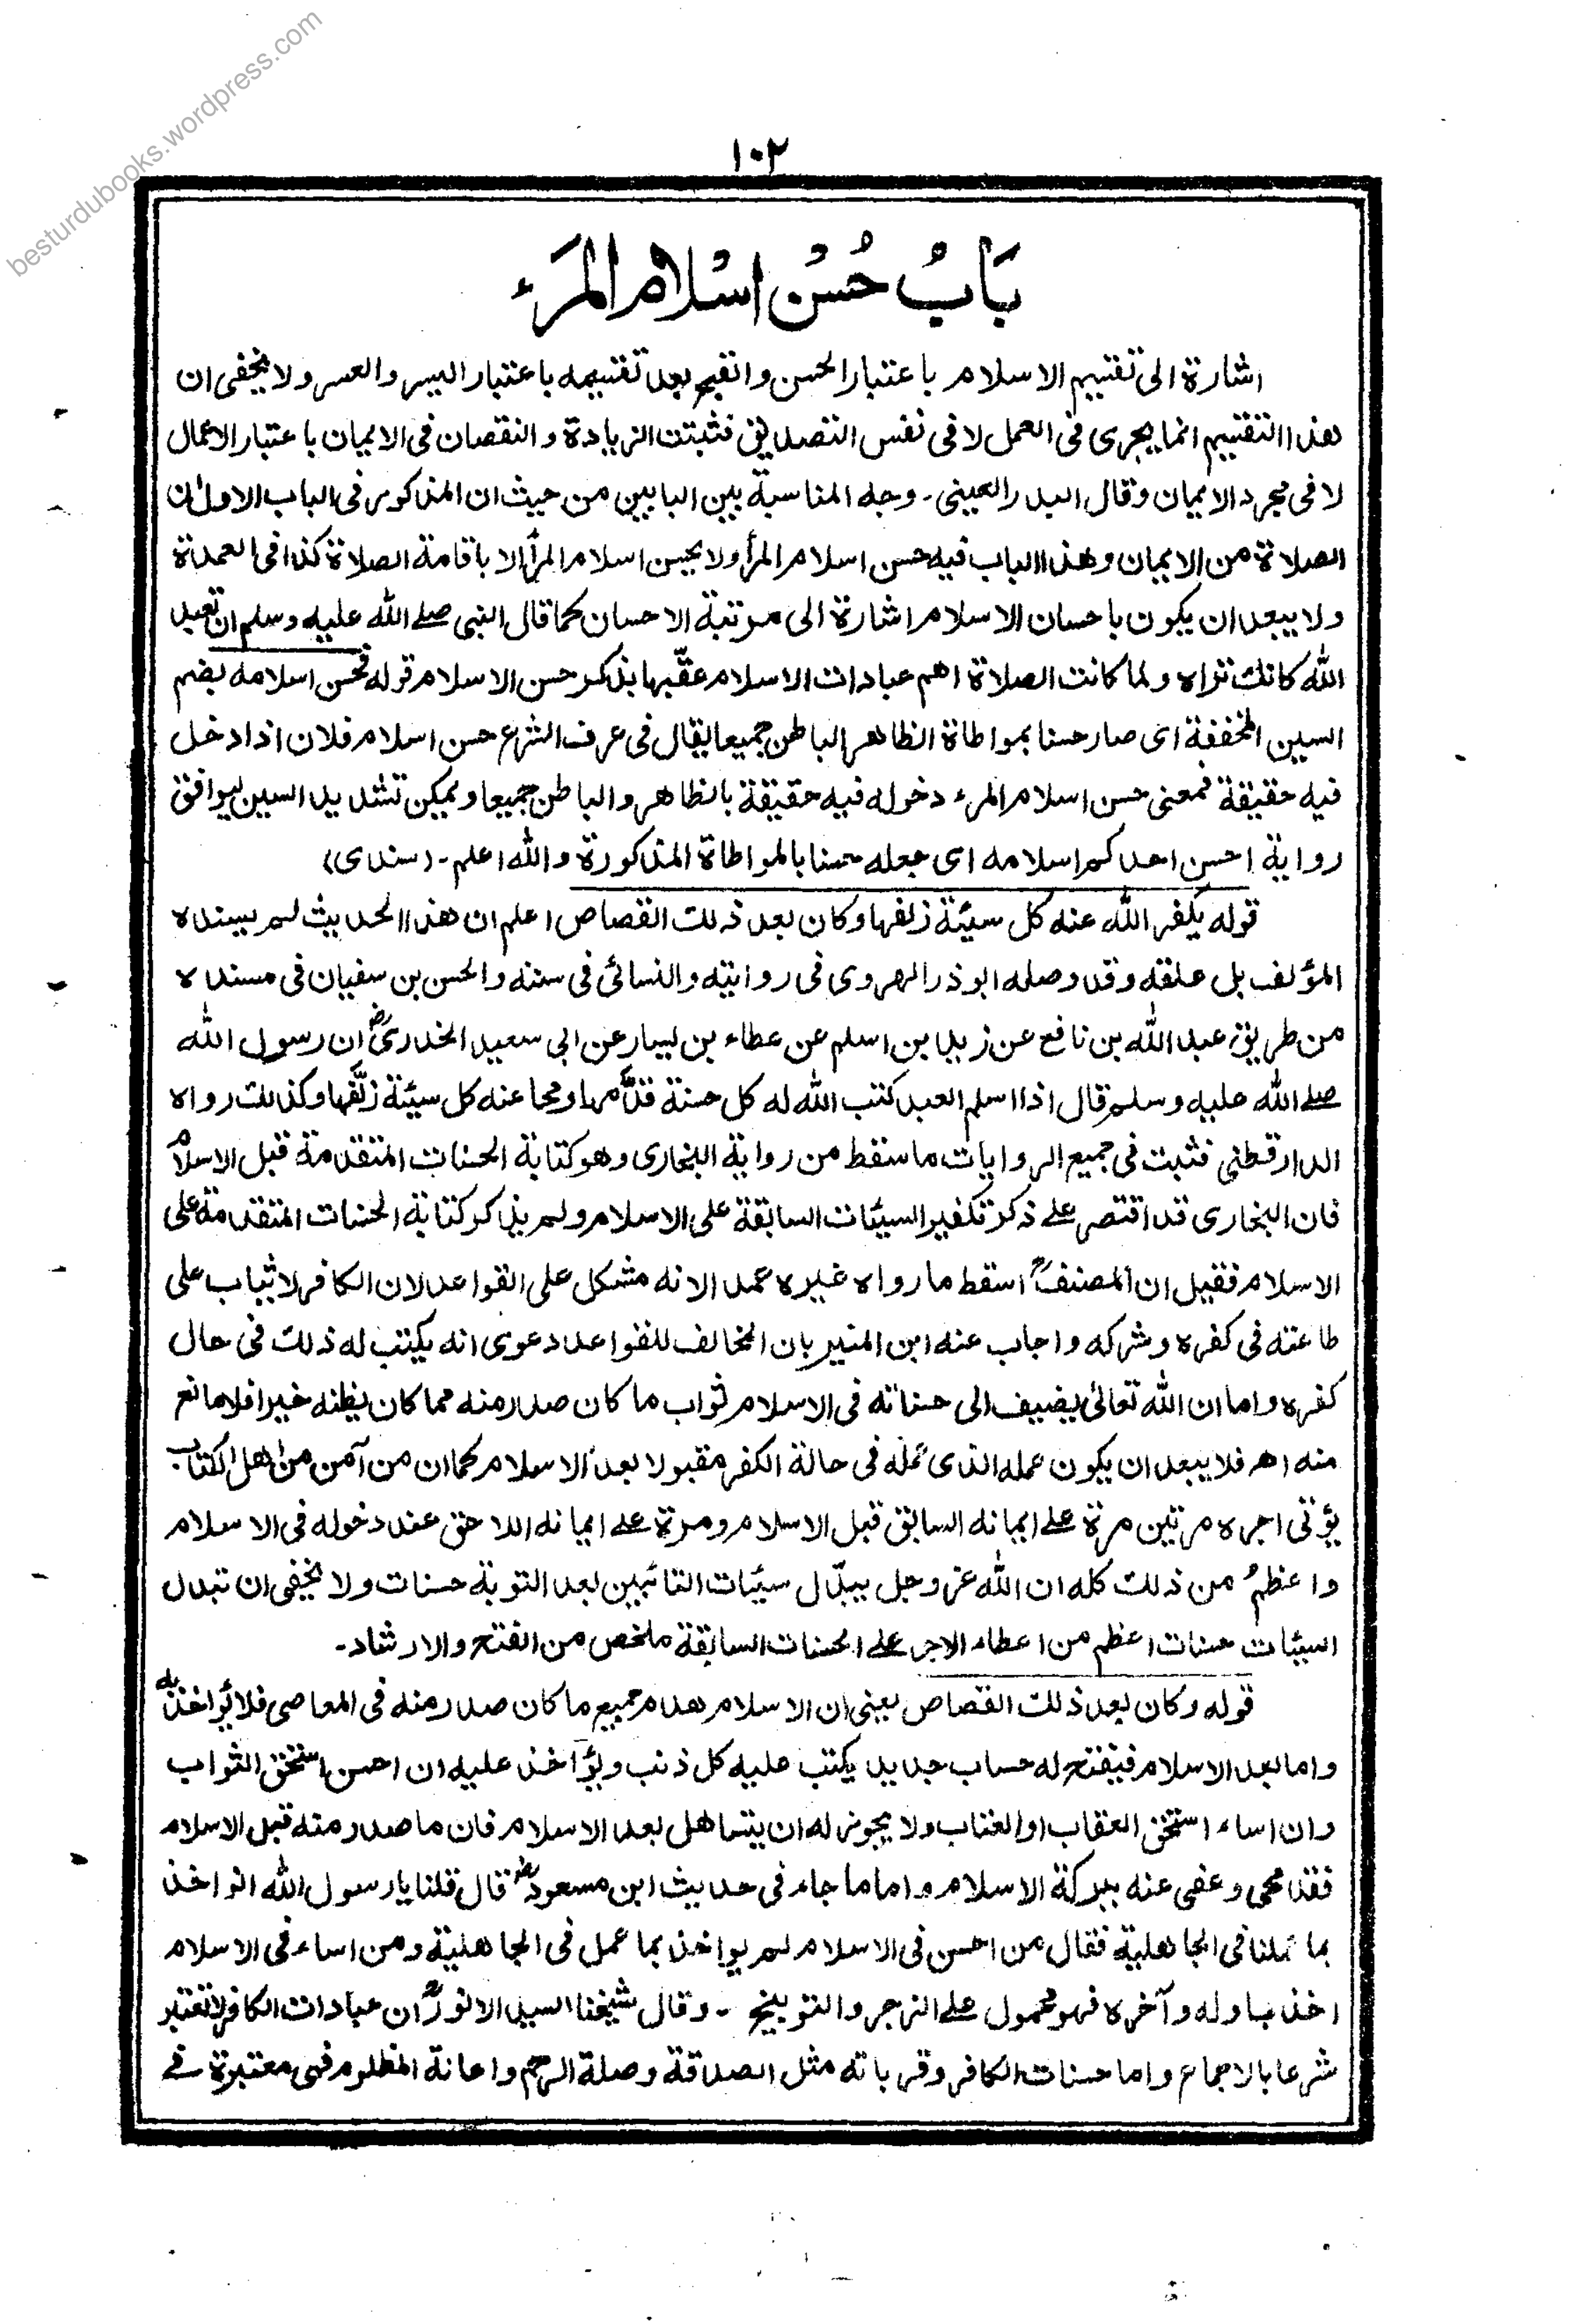 besturdubooks.wordpress.com
١٠٢
بَابُ حُسْنِ اسْلامِ المَرْء
اشارة الى تقسيم الاسلام باعتبار الحسن والقبح بعد تقسيمه باعتبار اليسر والعسر ولا يخفى ان
هذا التقسيم انما يجرى فى العمل لا فى نفس التصديق فثبتت الزيادة والنقصان فى الايمان باعتبار الاعمال
لا فى مجرد الايمان وقال البدر العينى - وجه المناسبة بين البابين من حيث ان المذكور فى الباب الاول ان
الصلاة من الايمان وهذا الباب فيه حسن اسلام المرأ ولا يحسن اسلام المرأ الا باقامة الصلاة كذا فى العمدة
ولا يبعد ان يكون باحسان الاسلام اشارة الى مرتبة الاحسان كما قال النبى صلے الله عليه وسلم ان تعبد
الله كانك تراه ولما كانت الصلاة اهم عبادات الاسلام عقّبها بذكر حسن الاسلام قوله فحسن اسلامه بضم
السين المخففة اى صار حسنا بمواطاة الظاهر الباطن جميعا يقال فى عرف الشرع حسن اسلام فلان اذا دخل
فيه حقيقة فمعنى حسن اسلام المرء دخوله فيه حقيقة بالظاهر والباطن جميعا ويمكن تشديد السين ليوافق
رواية احسن احدكم اسلامه اى جعله حسنا بالمواطاة المذكورة والله اعلم - (سندى)
قوله يكفر الله عنه كل سيئة زلفها وكان بعد ذلك القصاص اعلم ان هذا الحديث لم يسنده
المؤلف بل علقه وقد وصله ابو ذر الهروى فى روايته والنسائى فى سننه والحسن بن سفيان فى مسنده
من طريق عبد الله بن نافع عن زيد بن اسلم عن عطاء بن يسار عن ابى سعيد الخدرىؓ ان رسول الله
صلے الله عليه وسلم قال اذا اسلم العبد كتب الله له كل حسنة قدَّمها ومحا عنه كل سيئة زلَّفها وكذلك رواه
الدارقطنى فثبت فى جميع الروايات ما سقط من رواية البخارى وهو كتابة الحسنات المتقدمة قبل الاسلام
فان البخارى قد اقتصر على ذكر تكفير السيئات السابقة على الاسلام ولم يذكر كتابة الحسنات المتقدمة على
الاسلام فقيل ان المصنفؒ اسقط ما رواه غيره عمدا لانه مشكل على القواعد لان الكافر لا يثاب على
طاعته فى كفره وشركه واجاب عنه ابن المنير بان المخالف للقواعد دعوى انه يكتب له ذلك فى حال
كفره واما ان الله تعالى يضيف الى حسناته فى الاسلام ثواب ما كان صدر منه مما كان يظنه خيرا فلا مانع
منه اهـ فلا يبعد ان يكون عمله الذى عمله فى حالة الكفر مقبولا بعد الاسلام كما ان من آمن من اهل الكتاب
يؤتى اجره مرتين مرة على ايمانه السابق قبل الاسلام ومرة على ايمانه اللاحق عند دخوله فى الاسلام
واعظم من ذلك كله ان الله عز وجل يبدّل سيئات التائبين بعد التوبة حسنات ولا يخفى ان تبدل
السيئات حسنات اعظم من اعطاء الاجر على الحسنات السابقة ملخص من الفتح والارشاد -
قوله وكان بعد ذلك القصاص يعنى ان الاسلام هدم جميع ما كان صدر منه فى المعاصى فلا يؤاخذ به
واما بعد الاسلام فيفتح له حساب جديد يكتب عليه كل ذنب ويؤاخذ عليه ان احسن استحق الثواب
وان اساء استحق العقاب او العتاب ولا يجوز له ان يتساهل بعد الاسلام فان ما صدر منه قبل الاسلام
فقد محى وعفى عنه ببركة الاسلام واما ما جاء فى حديث ابن مسعودؓ قال قلنا يا رسول الله انؤاخذ
بما عملنا فى الجاهلية فقال من احسن فى الاسلام لم يؤاخذ بما عمل فى الجاهلية ومن اساء فى الاسلام
اخذ باوله وآخره فهو محمول على الزجر والتوبيخ - وقال شيخنا السيد الانورؒ ان عبادات الكافر لا تعتبر
شرعا بالاجماع واما حسنات الكافر وقرباته مثل الصدقة وصلة الرحم واعانة المظلوم فهى معتبرة فے